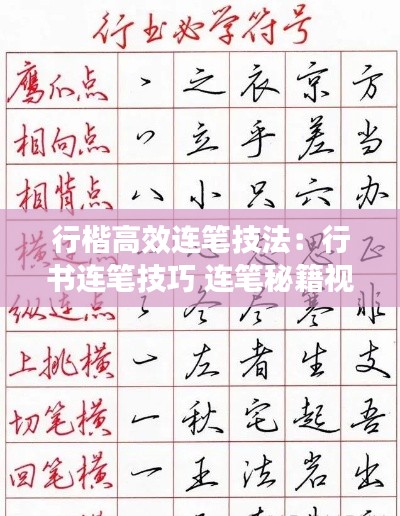 行书必学符号
鹰爪点 丶 之 衣 京 方
相向点 丷 立 乎 差 当
相背点 八 小 只 六 办
行楷高效连笔技法：行
书连笔技巧 连笔秘籍视
纵连点 冬 尽 寒 非
上挑横 一 左 者 生 支
切笔横 一 秋 宅 起 吾
回笔横 一 王 法 岩 出